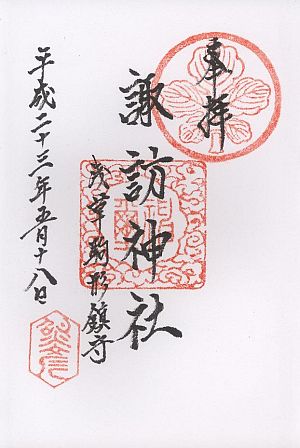 奉拝
諏訪神社
浅草駒形鎮守
平成二十三年五月十八日